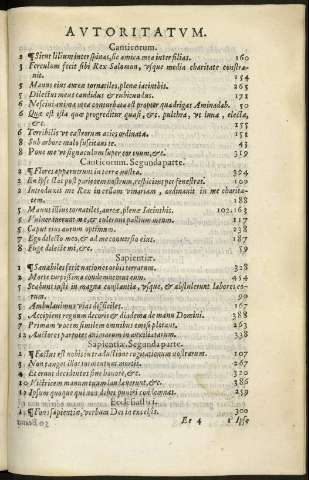 AVTORITATVM.
Canticorum.
2 ¶Sicut lilium inter spinas, sic amica mea inter filias. 160
3 Ferculum fecit sibi Rex Salamon, vsque media charitate constra-
uit. 154
5 Manus eius aureæ tornatiles, plenæ iacinthis. 265
5 Dilectus meus candidus & rubicundus. 171
6 Nesciui anima mea conturbata est propter quadrigas Aminadab. 50
6 Quæ est ista quæ progreditur quasi, &c. pulchra, vt luna, electa,
&c. 155
6 Terribilis vt castrorum acies ordinata. 158
8 Sub arbore malo suscitaui te. 43
8 Pone me vt signaculum super cor tuum, &c. 359
Canticorum. Segunda parte.
2 ¶Flores apparuerunt in terra nostra. 394
2 En ipse stat post parietem nostrum, respiciens per fenestras. 100
2 Introduxit me Rex in cellam vinariam, ordinauit in me charita-
tem. 188
5 Manus illius tornatiles, aureæ, plenæ Iacinthis. 102.163
5 Vulnerauerunt me, & tulerunt pallium meum. 117
5 Caput eius aurum optimum. 238
7 Ego dilecto meo, & ad me conuersio eius. 187
8 Fuge dilecte mi, &c. 59
Sapientiæ.
1 ¶Sanabiles fecit nationes orbis terrarum. 328
2 Morte turpissima condemnemus eum. 454
5 Stabunt iusti in magna constantia, vsque, & abstulerunt labores eo-
rum. 90
5 Ambulauimus vias difficiles. 167
5 Accipient regnum decoris & diadema de manu Domini. 388
7 Primam vocem similem omnibus emisi plorans. 263
12 Auctores parentes animarum in auxiliatarum. 338
Sapientiæ. Segunda parte.
2 ¶Factus est nobis in traductione cogitationum nostrarum. 107
3 Non tanget illos tormentum mortis. 267
4 Et erunt decidentes sine honore, &c. 320
10 Victricem manum tuam laudauerunt, &c. 386
12 Ipsum quoque qui non debet puniri condemnas. 239
Ecclesiasticus.
1 ¶Fons sapientiæ, verbum Dei in excelsis. 300
Ee 4 1 Ipse